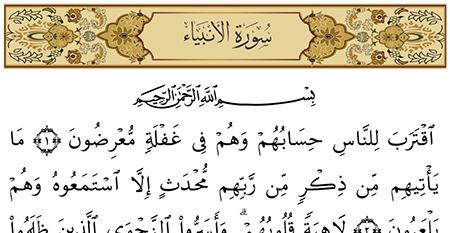 سُورَةُ الأَنبِيَاء
بِسْمِ ٱللَّهِ ٱلرَّحْمَٰنِ ٱلرَّحِيمِ
ٱقْتَرَبَ لِلنَّاسِ حِسَابُهُمْ وَهُمْ فِى غَفْلَةٍ مُّعْرِضُونَ ١ مَا
يَأْتِيهِم مِّن ذِكْرٍ مِّن رَّبِّهِم مُّحْدَثٍ إِلَّا ٱسْتَمَعُوهُ وَهُمْ
يَلْعَبُونَ ٢ لَاهِيَةً قُلُوبُهُمْ ۗ وَأَسَرُّوا۟ ٱلنَّجْوَى ٱلَّذِينَ ظَلَمُوا۟